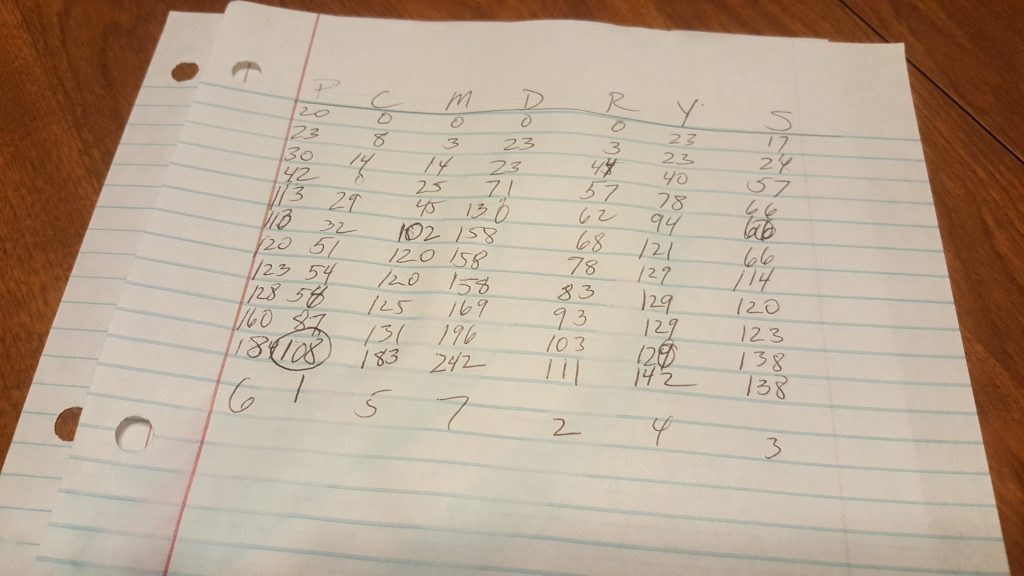 P C M D R Y S
20 0 0 0 0 23 17
23 8 3 23 3 23 24
30 14 14 23 44 40 57
42 25 71 57 78 66
113 29 45 130 62 94 66
118 32 102 158 68 121 66
120 51 120 158 78 129 114
123 54 120 158 83 129 120
128 58 125 169 93 129 123
160 87 131 196 103 129 138
184 108 183 242 111 142 138
6 1 5 7 2 4 3